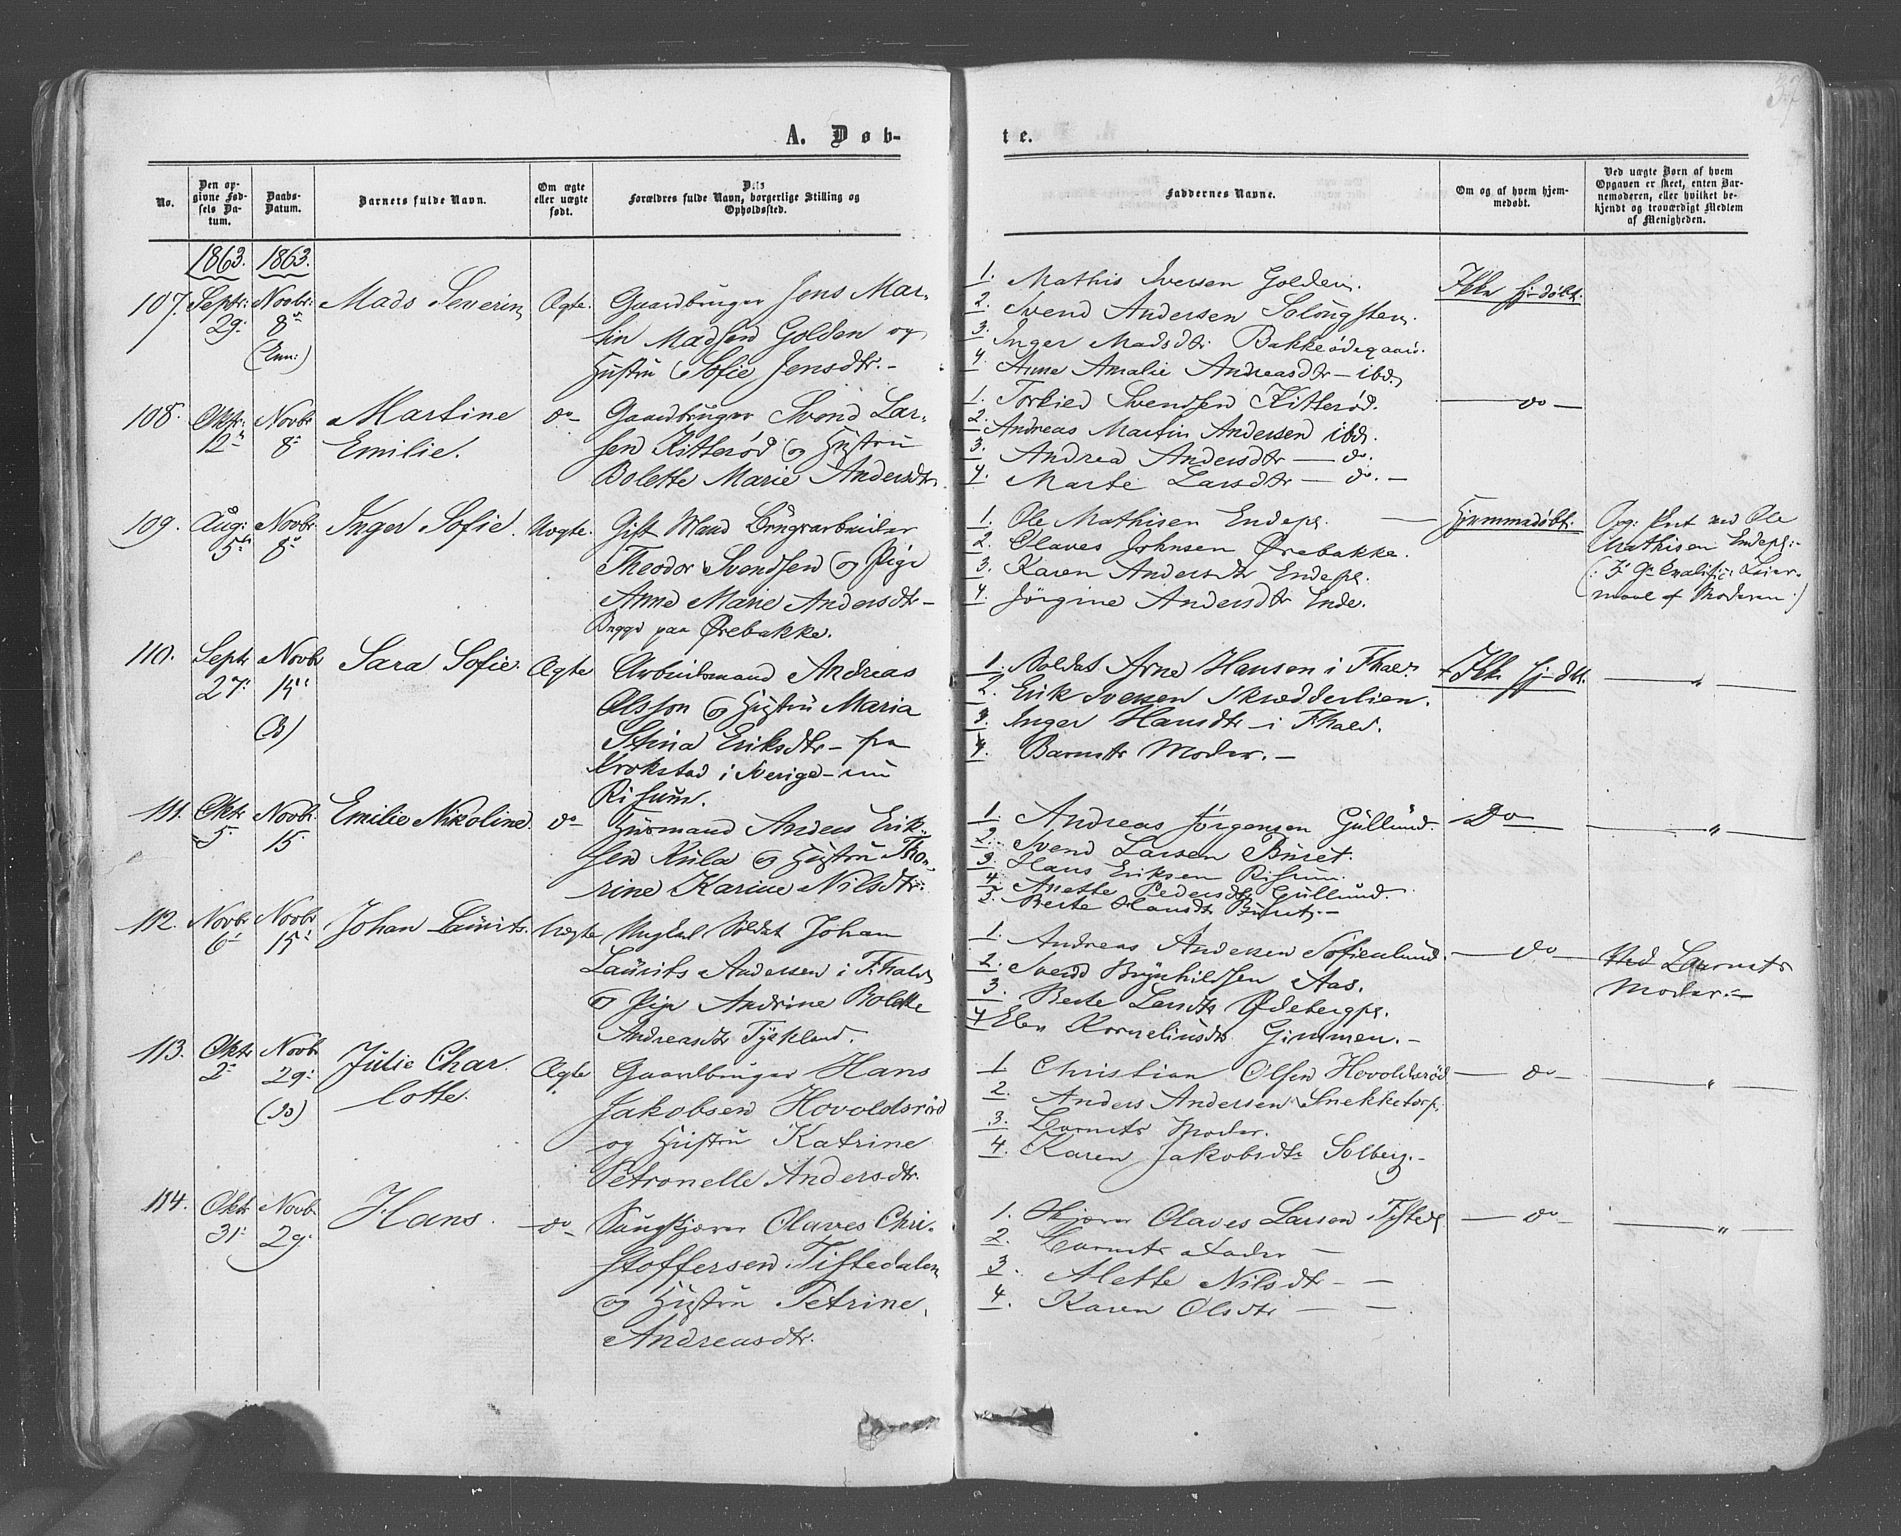 A. Døb-
te.
No.
Den op-
givne Fød-
sels Da-
tum.
Daabs-
Datum.
Barnets fulde Navn.
Om ægte
eller uægte
født.
Forældres fulde Navn, borgerlige Stilling og
Opholdssted.
Faddernes Navne.
Om og af hvem hjem-
medøbt.
Ved uægte Børn af hvem
Opgaven er skeet, enten Bar-
nemoderen, eller hvilket be-
kjendt og troværdigt Medlem
af Menigheden.
1863. 1863.
107. Septr: 29. Novbr: 8de Mads Severin Ægte. Gaardbruger Jens Mar-
tin Madsen Golden og
Hustru Sofie Jensdtr.-
1. Mathis Iversen Golden.
2. Svend Andersen Solongsten.
3. Inger Madsdtr Bakkeødegaard.
4. Anne Amalie Andreasdtr - ibd.
Ikke hj-døbt.
108. Oktr: 12 Novbr 8 Martine
Emilie. do Gaardbruger Svend Lar-
sen Kitterød og Hustru
Bolette Marie Andersdtr.
1. Torkied Svendsen Kitterød.
2. Andreas Martin Andersen ibd.
3. Andrea Andersdtr - do.
4. Marte Larsdtr - do. -
do -
109. Aug: 5 Novbr. 8 Inger Sofie. Uægte. Gift Mand Brugsarbeider
Theodor Svendsen og Pige
Anne Marie Andersdtr -
Begge paa Ørebakke.
1. Ole Mathisen Endepl.
2. Olaves Johnsen Ørebakke.
3. Karen Andersdtr Endepl.
4. Jørgine Andersdtr Ende.
Hjemmedøbt.
Mathisen Endepl:
maal af Moderen.)
110. Septr 27. Novbr 15 Sara Sofie. Ægte Arbeidsmand Andreas
Olsson og Hustru Maria
Stina Eriksdtr - fra
Krokstad i Sverige - nu
Risum.
1. Soldat Arne Hansen i Fhald.
2. Erik Iversen Skrædderlien.
3. Inger Hansdtr - i Fhald.
4. Barnets Moder. -
Ikke hj-dbt.
111. Oktr 5 Novbr. 15 Emilie Nikoline. do Husmand Anders Erik-
sen Kula og Hustru Tho-
rine Karine Nilsdtr.
1. Andreas Jørgensen Gullund.
2. Svend Larsen Buset.
3. Hans Eriksen Risum.
4. Anette Pedersdtr Gullund.
5. Berte Hansdtr Buset. -
Do
112. Novbr 6 Novbr 15 Johan Laurits. Uægte Ungkarl Soldat Johan
Laurits Andersen i Fhald
og Pige Andrine Bolette
Andreasdtr
1. Andreas Andersen Sofienlund.
2. Svend Brynhildsen Aas.
3. Berte Larsdtr Ødebergpl.
4. Elen Korneliusdtr Gimmen. -
do -
Ved Barnets
Moder. -
113. Oktr 2 Novbr 29 Julie Char-
lotte. Ægte Gaardbruger Hans
Jakobsen Hovoldsrød
og Hustru Katrine
Petronelle Andersdtr.
1 Christian Olsen Hovoldsrød
2. Anders Andersen Snekketorp.
3. Barnets Moder.
4. Karen Jakobsdtr Solberg. -
do -
114. Oktr 31 Novbr. 29. Hans. do Saugskjærer Olaves Chri-
stoffersen i Tistedalen
og Hustru Petrine
Andreasdtr.
1. Skjærer Olaves Larsen Tistedl
2. Barnets Fader -
3. Alette Nilsdtr - -
4. Karen Olsdtr - -
do -